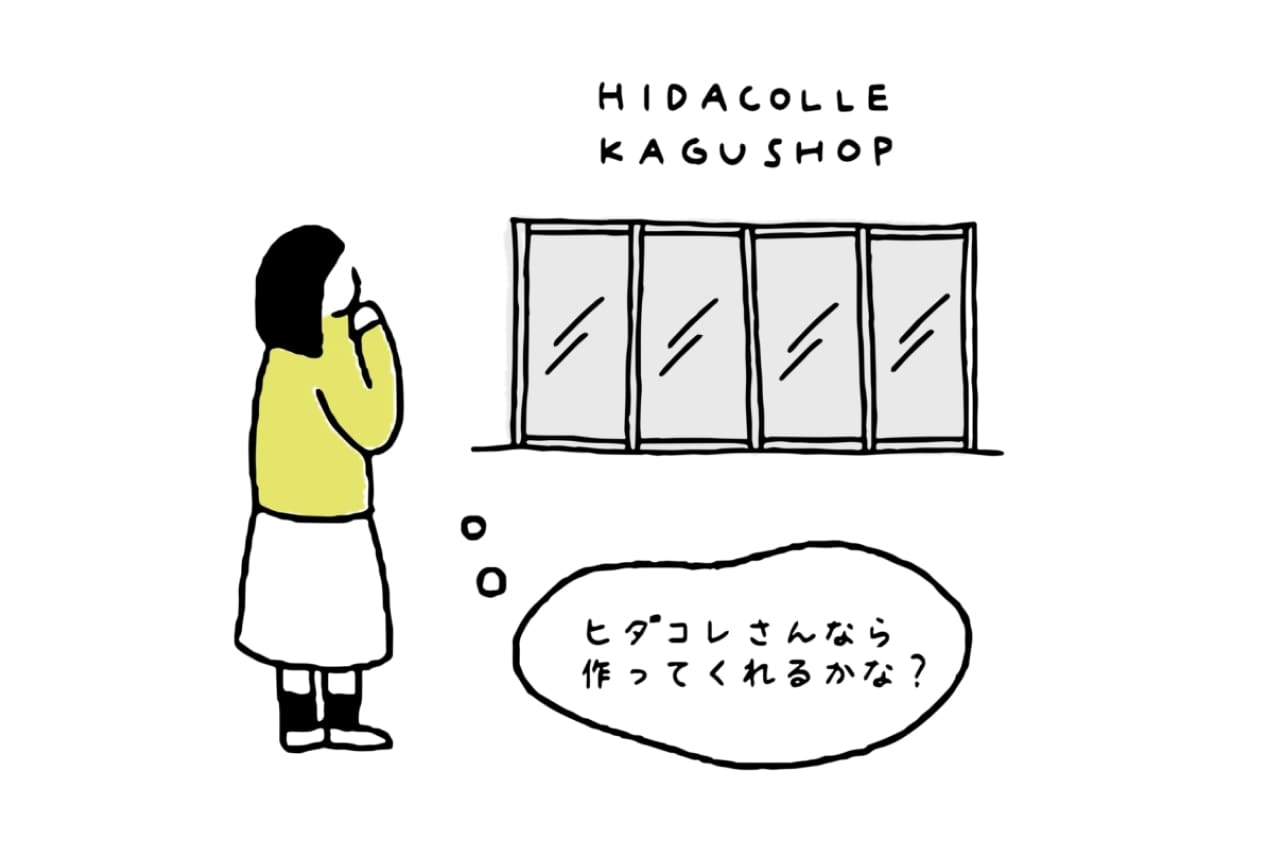 HIDACOLLE
KAGUSHOP
ヒダコレさんなら
作ってくれるかな?